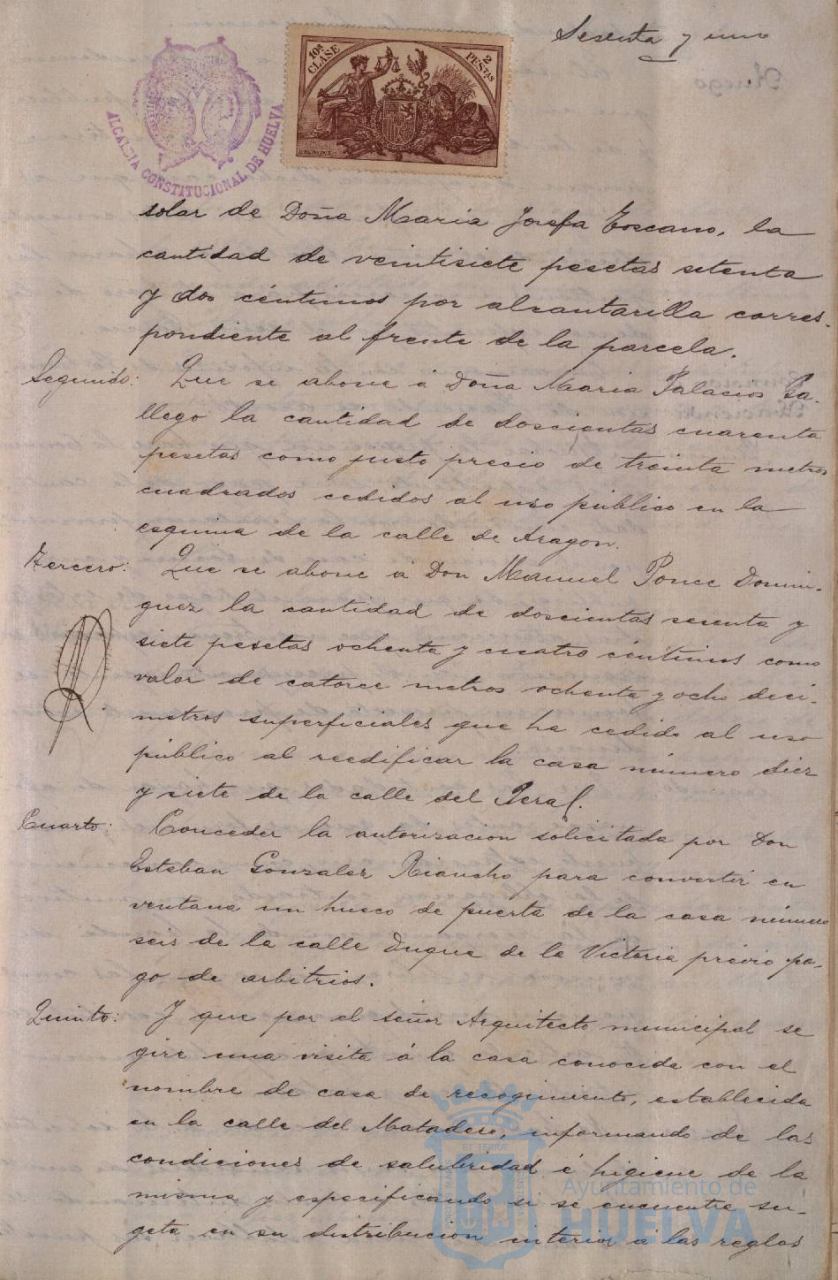 Sesenta y uno
ALCALDIA CONSTITUCIONAL DE HUELVA
10ª CLASE
2 PESETAS
solar de Doña Maria Josefa Toscano, la
cantidad de veintisiete pesetas setenta
y dos céntimos por alcantarilla corres-
pondiente al frente de la parcela.
Segundo: Que se abone á Doña Maria Palacios Ga-
llego la cantidad de doscientas cuarenta
pesetas como justo precio de treinta metros
cuadrados cedidos al uso público en la
esquina de la calle de Aragon.
Tercero: Que se abone á Don Manuel Ponce Domin-
guez la cantidad de doscientas sesenta y
siete pesetas ochenta y cuatro céntimos como
valor de catorce metros ochenta y ocho decí-
metros superficiales que ha cedido al uso
público al reedificar la casa número diez
y siete de la calle del Peral.
Cuarto: Conceder la autorizacion solicitada por Don
Esteban Gonzalez Riancho para convertir en
ventana un hueco de puerta de la casa número
seis de la calle Duque de la Victoria prévio pa-
go de arbitrios.
Quinto: Y que por el señor Arquitecto municipal se
gire una visita á la casa conocida con el
nombre de casa de recogimiento, establecida
en la calle del Matadero, informando de las
condiciones de salubridad é higiene de la
misma y especificando si se encuentra su-
geta en su distribucion interior a las reglas
Ayuntamiento de
HUELVA